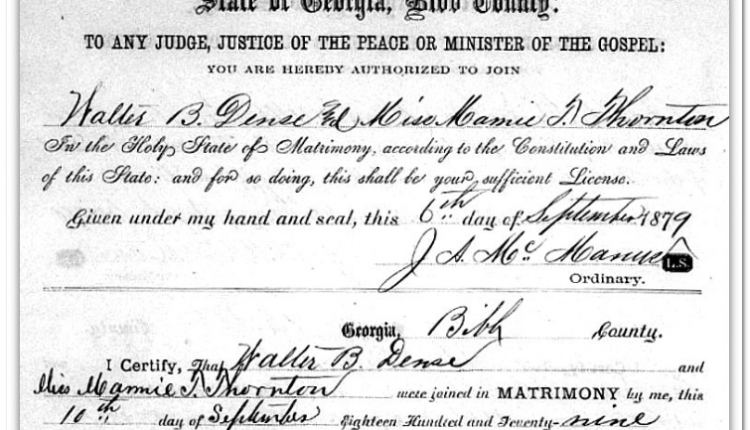 State of Georgia, Bibb County.
TO ANY JUDGE, JUSTICE OF THE PEACE OR MINISTER OF THE GOSPEL:
YOU ARE HEREBY AUTHORIZED TO JOIN
Walter B. Dense and Miss Mamie T. Thornton
In the Holy State of Matrimony, according to the Constitution and Laws
of this State: and for so doing, this shall be your sufficient License.
Given under my hand and seal, this 6th day of September 1879
J A. Mc Manus L.S.
Ordinary.
Georgia, Bibb County.
I Certify, That Walter B. Dense and
Miss Mammie T. Thornton were joined in MATRIMONY by me, this
10th day of September Eighteen Hundred and Seventy-nine